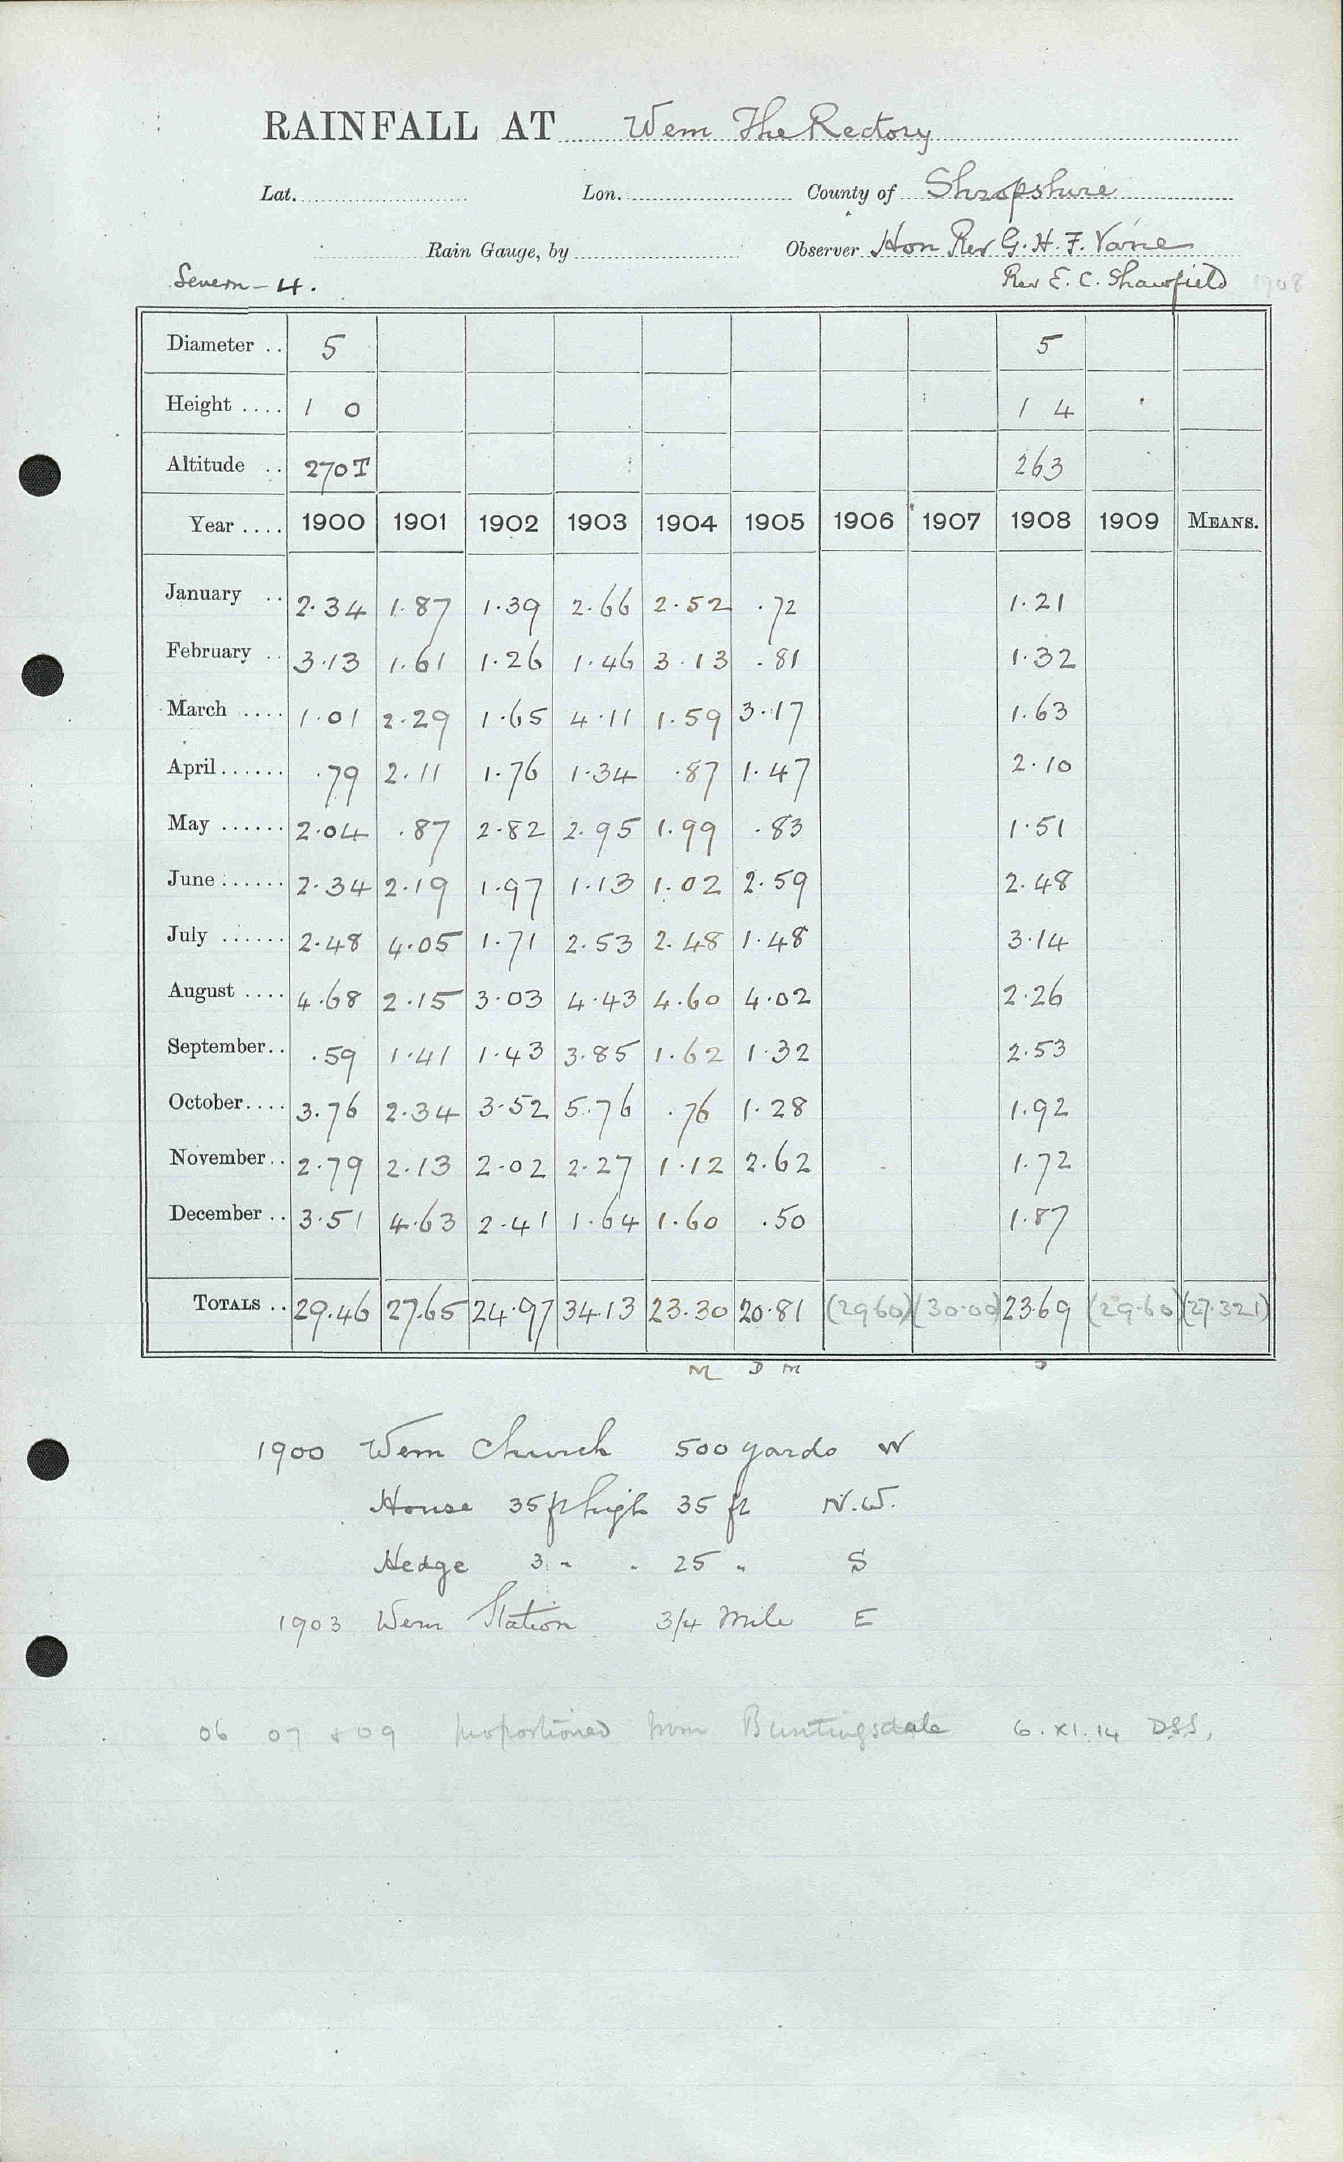 RAINFALL AT Wem The Rectory
Lat. Lon. County of Shropshire
Rain Gauge, by Observer Hon Rev G. H. F. Vane
Severn - 4. Rev E. C. Shawfield 1908
Diameter .. 5 5
Height .... 1 0 1 4
Altitude .. 270T 263
Year .... 1900 1901 1902 1903 1904 1905 1906 1907 1908 1909 MEANS.
January .. 2.34 1.87 1.39 2.66 2.52 .72 1.21
February .. 3.13 1.61 1.26 1.46 3.13 .81 1.32
March .... 1.01 2.29 1.65 4.11 1.59 3.17 1.63
April ...... .79 2.11 1.76 1.34 .87 1.47 2.10
May ...... 2.04 .87 2.82 2.95 1.99 .83 1.51
June ...... 2.34 2.19 1.97 1.13 1.02 2.59 2.48
July ...... 2.48 4.05 1.71 2.53 2.48 1.48 3.14
August .... 4.68 2.15 3.03 4.43 4.60 4.02 2.26
September.. .59 1.41 1.43 3.85 1.62 1.32 2.53
October.... 3.76 2.34 3.52 5.76 .76 1.28 1.92
November.. 2.79 2.13 2.02 2.27 1.12 2.62 1.72
December .. 3.51 4.63 2.41 1.64 1.60 .50 1.87
TOTALS .. 29.46 27.65 24.97 34.13 23.30 20.81 (29.60) (30.00) 23.69 (29.60) (27.321)
M D M
1900 Wem Church 500 yards W
House 35 ft high 35 ft N.W.
Hedge 3 " " 25 " S
1903 Wem Station 3/4 Mile E
06 07 & 09 proportioned from Buntingsdale 6.XI.14 DSS.